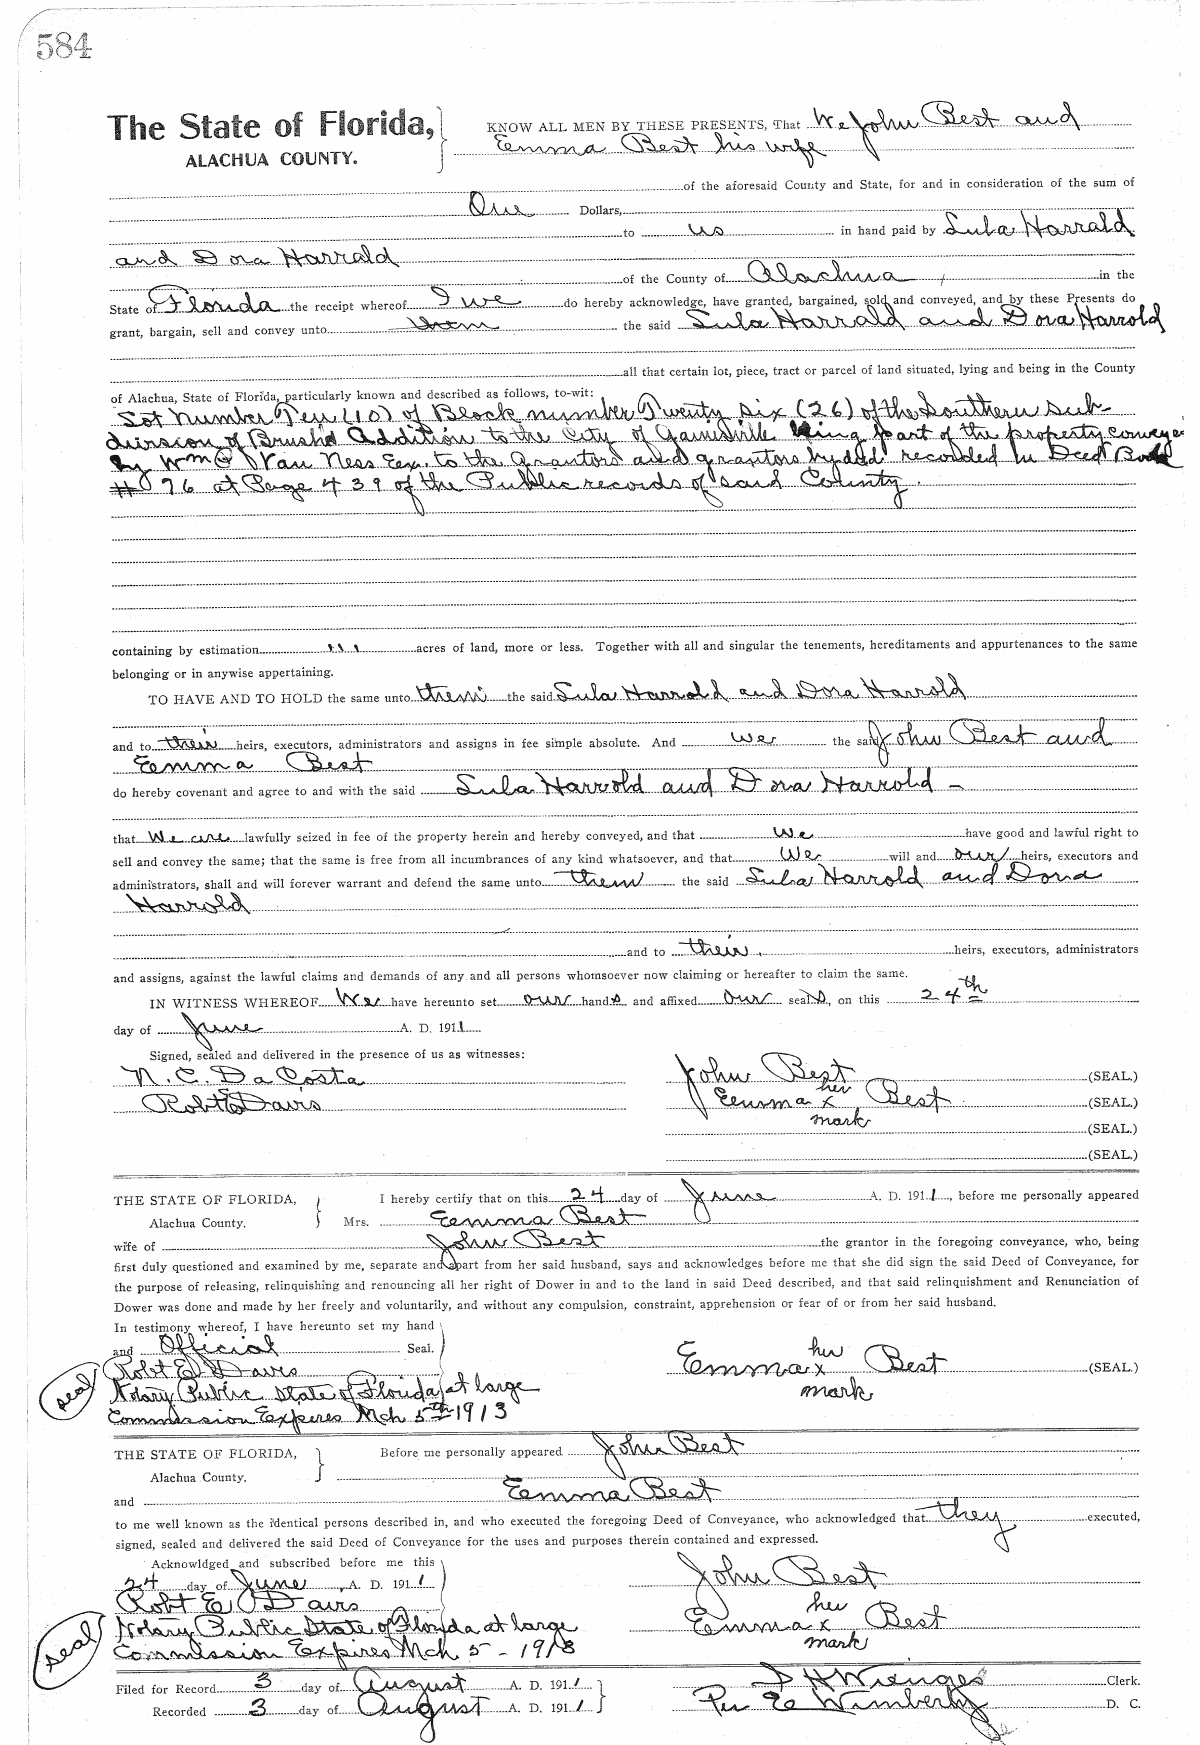 584
The State of Florida,
ALACHUA COUNTY.
KNOW ALL MEN BY THESE PRESENTS, That We John Best and
Emma Best his wife
of the aforesaid County and State, for and in consideration of the sum of
One Dollars,
to us in hand paid by Lula Harrald
and Dora Harrald
of the County of Alachua in the
State of Florida the receipt whereof I we do hereby acknowledge, have granted, bargained, sold and conveyed, and by these Presents do
grant, bargain, sell and convey unto them the said Lula Harrald and Dora Harrold
all that certain lot, piece, tract or parcel of land situated, lying and being in the County
of Alachua, State of Florida, particularly known and described as follows, to-wit:
Lot Number Ten (10) of Block number Twenty six (26) of the Southern sub-
division of Brush's Addition to the City of Gainesville being part of the property conveye
by Wm Van Ness Exr. to the grantors and grantors by deed recorded in Deed Book
# 76 at Page 439 of the Public records of said County.
containing by estimation acres of land, more or less. Together with all and singular the tenements, hereditaments and appurtenances to the same
belonging or in anywise appertaining.
TO HAVE AND TO HOLD the same unto them the said Lula Harrold and Dora Harrold
and to their heirs, executors, administrators and assigns in fee simple absolute. And we the said John Best and
Emma Best
do hereby covenant and agree to and with the said Lula Harrold and Dora Harrold -
that We are lawfully seized in fee of the property herein and hereby conveyed, and that we have good and lawful right to
sell and convey the same; that the same is free from all incumbrances of any kind whatsoever, and that We will and our heirs, executors and
administrators, shall and will forever warrant and defend the same unto them the said Lula Harrold and Dora
Harrold
and to their heirs, executors, administrators
and assigns, against the lawful claims and demands of any and all persons whomsoever now claiming or hereafter to claim the same.
IN WITNESS WHEREOF We have hereunto set our hands and affixed our seals, on this 24th
day of June A. D. 1911
Signed, sealed and delivered in the presence of us as witnesses:
N. C. Da Costa
Robt E Davis
John Best (SEAL.)
her
Emma x Best (SEAL.)
mark
(SEAL.)
(SEAL.)
THE STATE OF FLORIDA,
Alachua County.
I hereby certify that on this 24 day of June A. D. 1911, before me personally appeared
Mrs. Emma Best
wife of John Best the grantor in the foregoing conveyance, who, being
first duly questioned and examined by me, separate and apart from her said husband, says and acknowledges before me that she did sign the said Deed of Conveyance, for
the purpose of releasing, relinquishing and renouncing all her right of Dower in and to the land in said Deed described, and that said relinquishment and Renunciation of
Dower was done and made by her freely and voluntarily, and without any compulsion, constraint, apprehension or fear of or from her said husband.
In testimony whereof, I have hereunto set my hand
and Official Seal.
seal
Robt E Davis
Notary Public State of Florida at large
Commission Expires Mch 5th 1913
her
Emma x Best (SEAL.)
mark
THE STATE OF FLORIDA,
Alachua County.
Before me personally appeared John Best
and Emma Best
to me well known as the identical persons described in, and who executed the foregoing Deed of Conveyance, who acknowledged that they executed,
signed, sealed and delivered the said Deed of Conveyance for the uses and purposes therein contained and expressed.
Acknowldged and subscribed before me this
24 day of June, A. D. 1911
seal
Robt E Davis
Notary Public State of Florida at large
Commission Expires Mch 5 - 1913
John Best
her
Emma x Best
mark
Filed for Record 3 day of August A. D. 1911
Recorded 3 day of August A. D. 1911
S H Wienges Clerk.
Per E Wimberly D. C.